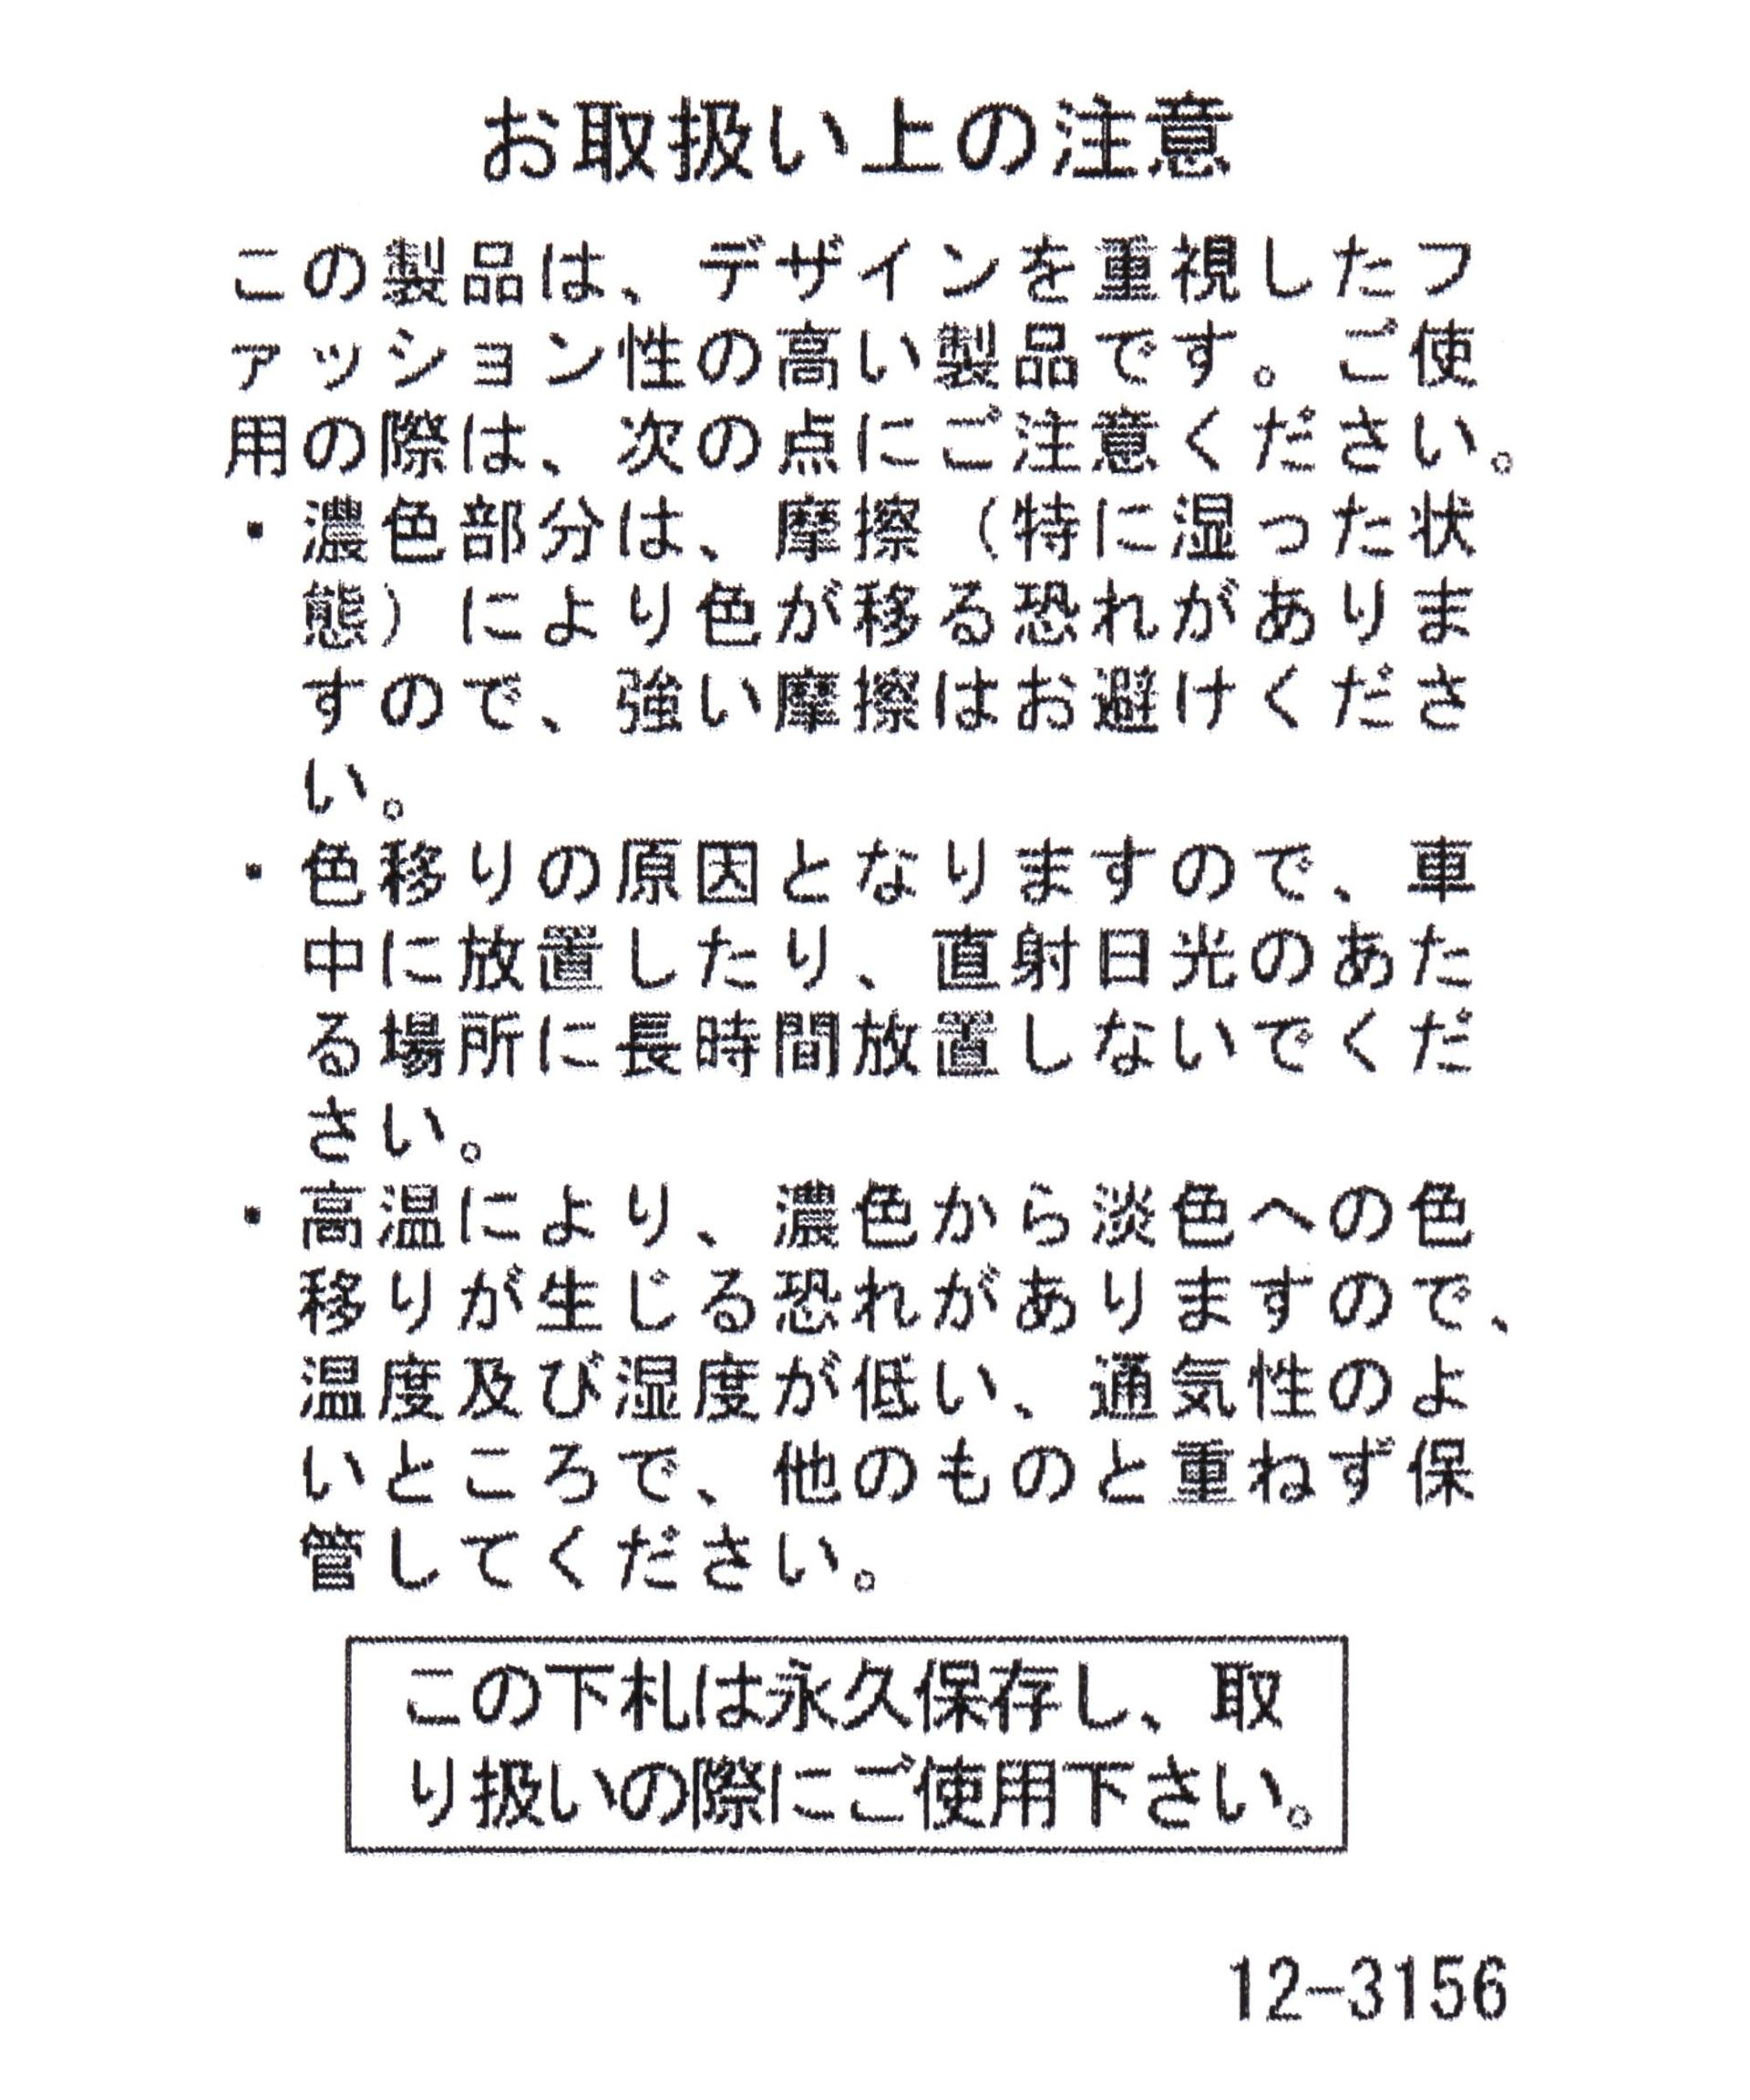 お取扱い上の注意
この製品は、デザインを重視したフ
ァッション性の高い製品です。ご使
用の際は、次の点にご注意ください。
・濃色部分は、摩擦（特に湿った状
態）により色が移る恐れがありま
すので、強い摩擦はお避けくださ
い。
・色移りの原因となりますので、車
中に放置したり、直射日光のあた
る場所に長時間放置しないでくだ
さい。
・高温により、濃色から淡色への色
移りが生じる恐れがありますので、
温度及び湿度が低い、通気性のよ
いところで、他のものと重ねず保
管してください。
この下札は永久保存し、取
り扱いの際にご使用下さい。
12-3156